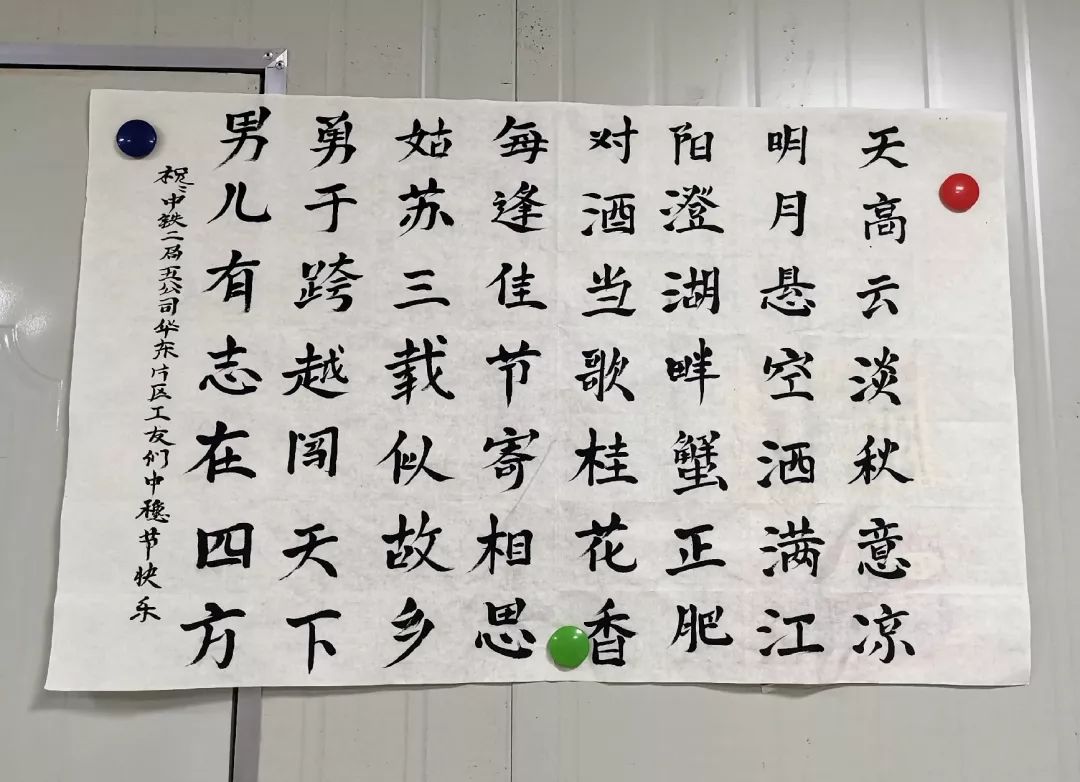 天高云淡秋意凉
明月悬空洒满江
阳澄湖畔蟹正肥
对酒当歌桂花香
每逢佳节寄相思
姑苏三载似故乡
勇于跨越闯天下
男儿有志在四方
祝:中铁二局五公司华东片区工友们中穐节快乐